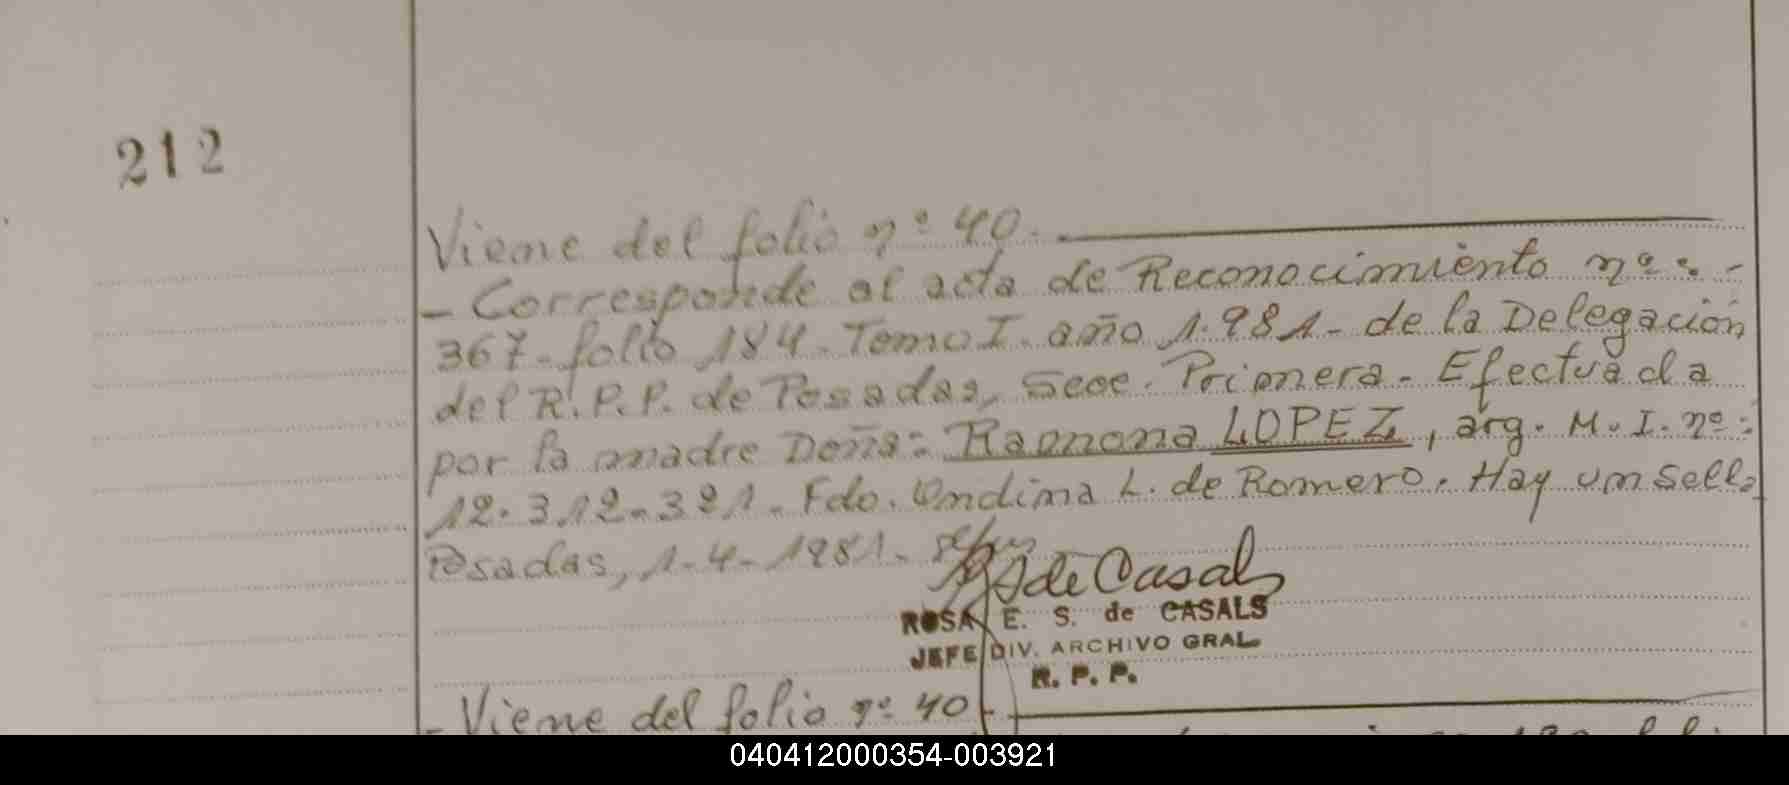 212
Viene del folio nº 40.
- Corresponde al acta de Reconocimiento nº: -
367- folio 184. Tomo I. año 1.981- de la Delegación
del R.P.P. de Posadas, Secc. Primera. Efectuada
por la madre Doña: Ramona LOPEZ, arg. M.I. nº:
12.312.321. Fdo. Ondina L. de Romero. Hay un sello
Posadas, 1-4-1981-
de Casals
ROSA E. S. de CASALS
JEFE DIV. ARCHIVO GRAL.
R. P. P.
- Viene del folio nº 40
040412000354-003921